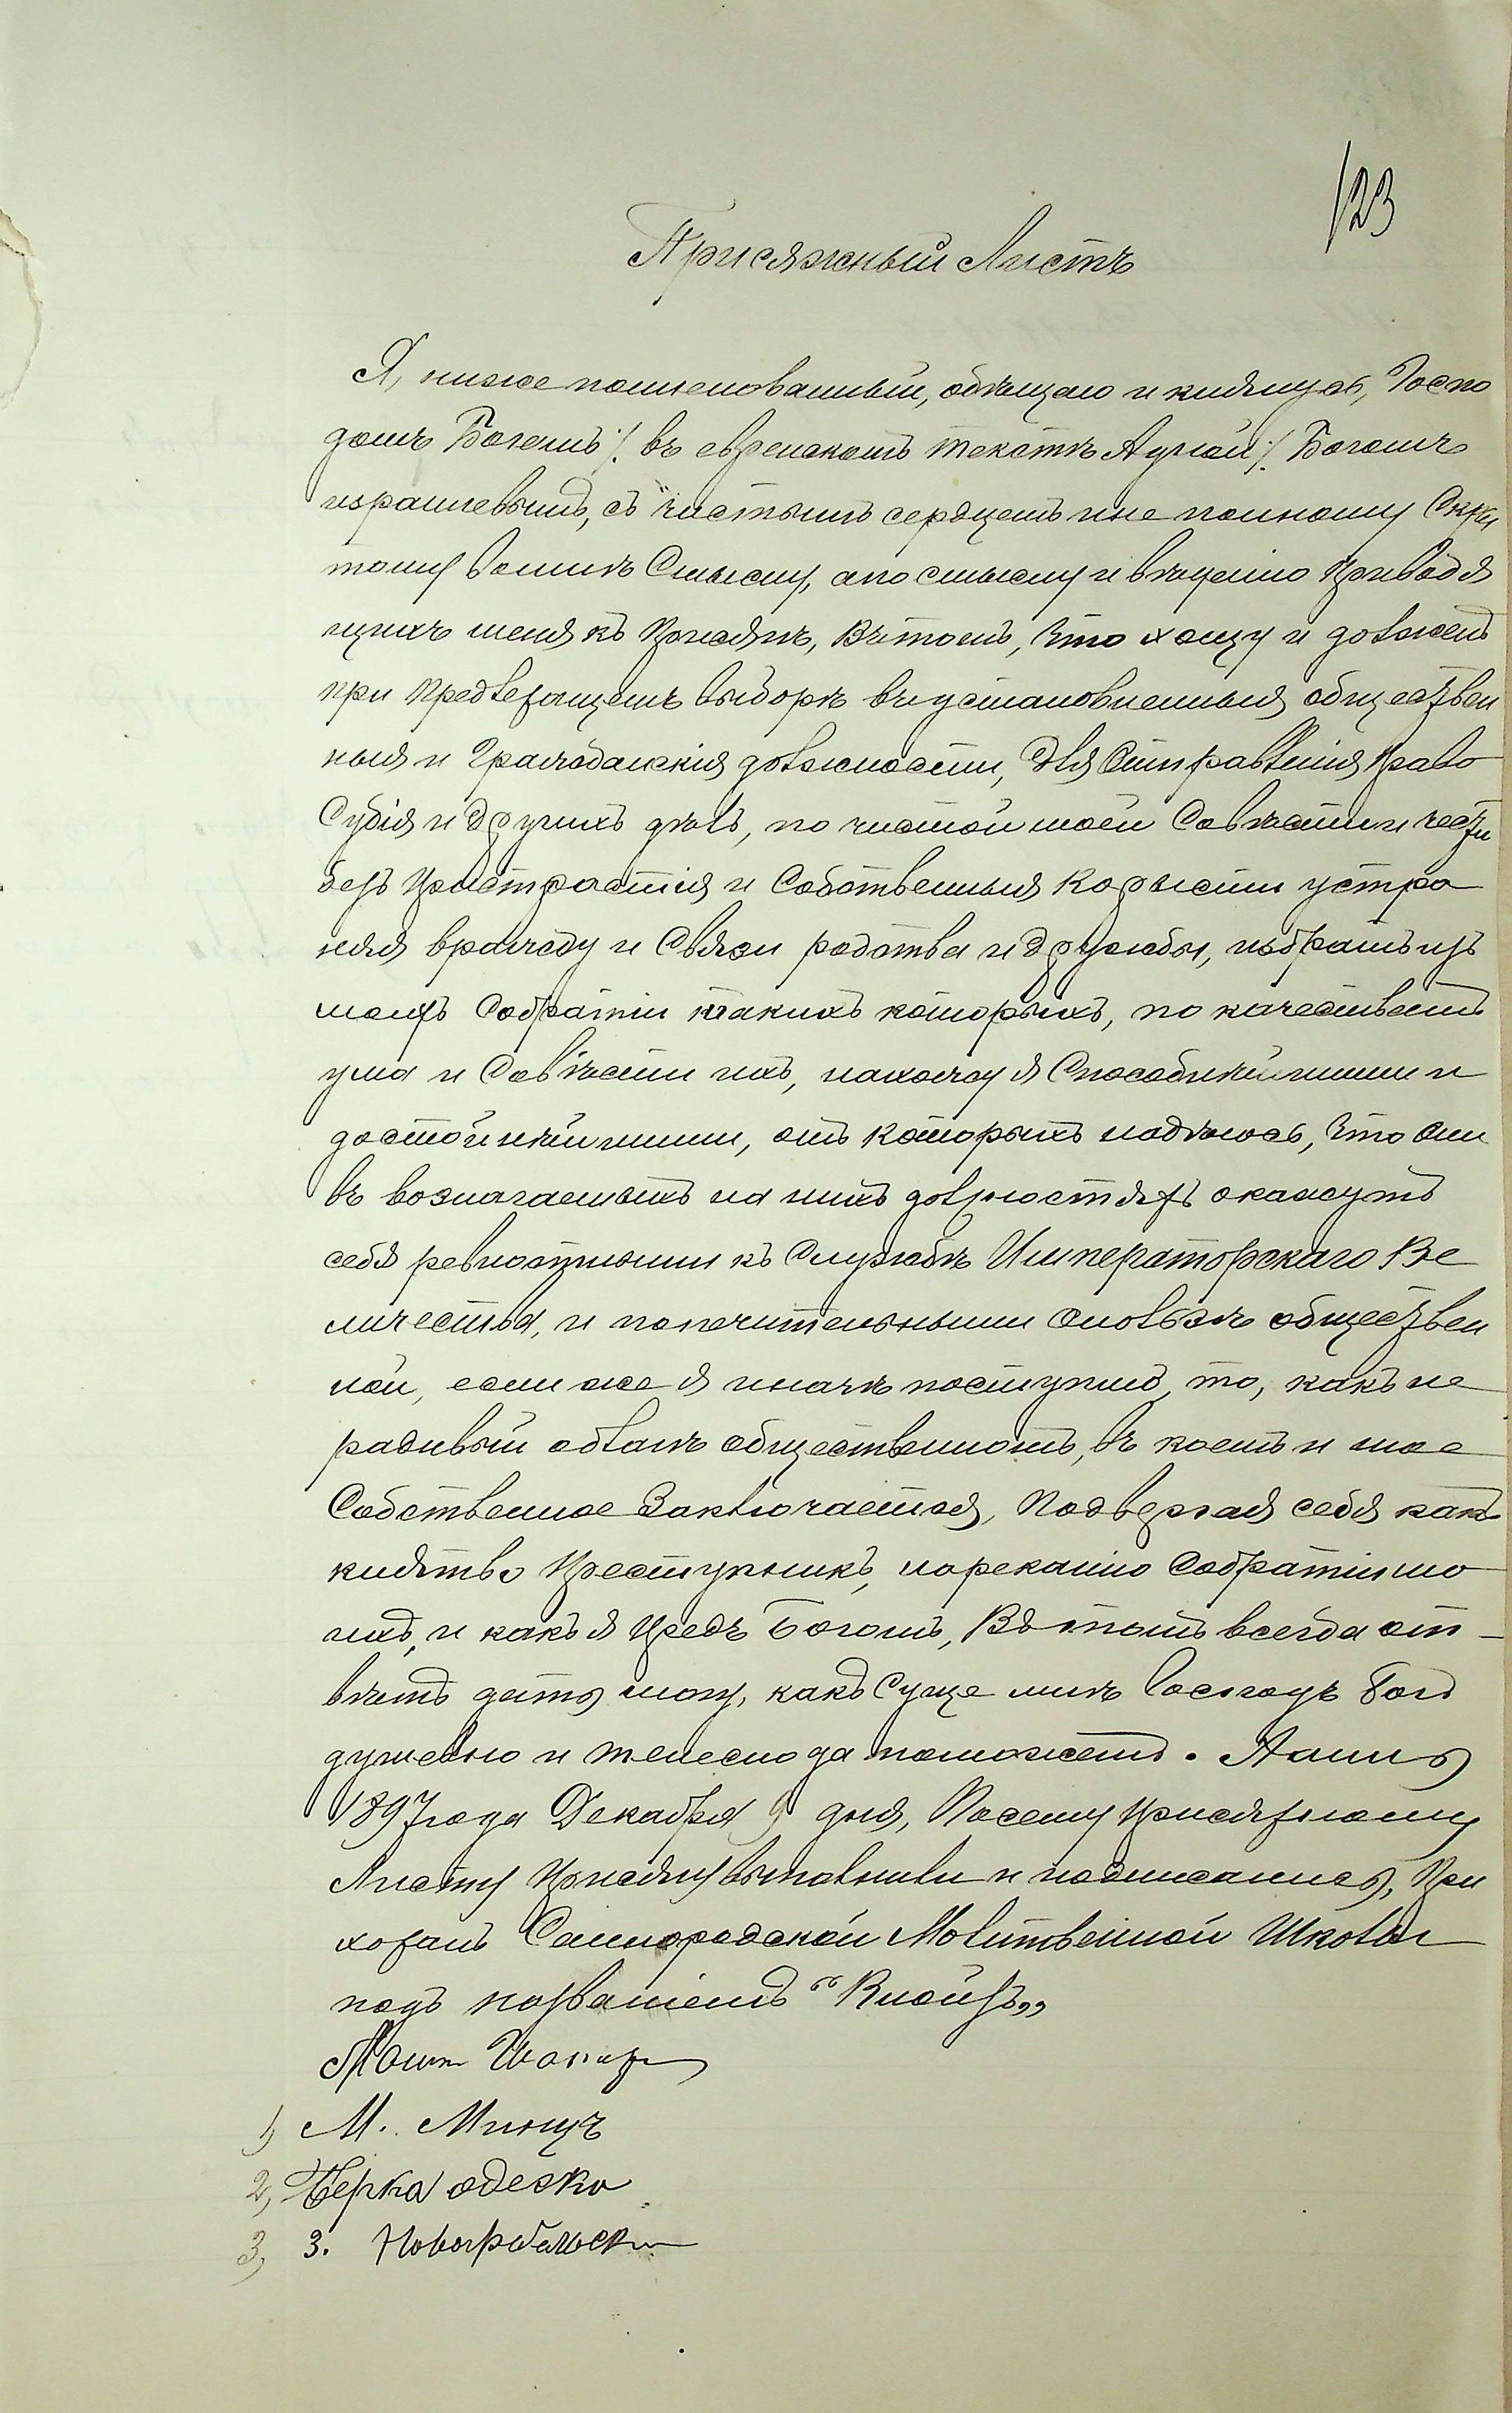 123
Присяжный Листъ
Я, ниже поименованный, обѣщаю и клянусь, Госпо
домъ Богомъ ./. въ еврейскомъ текстѣ Адунай ./. Богомъ
израилевымъ, съ чистымъ сердцемъ и не по иному Скры
тому во мнѣ Смыслу, а по смыслу и вѣденію приводя
щихъ меня къ присягѣ, Въ томъ, Что хощу и долженъ
при предлежащемъ выборѣ въ установленныя обществен
ныя и Гражданскія должности, Для Отправленія Право
Судія и другихъ дѣлъ, по чистой моей Совѣсти и чести
безъ пристрастія и Собственныя Корысти устра
няя вражду и Связи родства и дружбы, избрать изъ
моихъ Собратіи такихъ которыхъ, по качествамъ
ума и Совѣсти ихъ, нахожу я Способнѣйшими и
достойнѣйшими, отъ которыхъ надѣюсь, Что они
въ возлагаемыхъ на нихъ должностяхъ окажутъ
себя ревностными къ Службѣ Императорскаго Ве
личества, и попечительными о пользѣ обществен
ной, если же я иначѣ поступлю, то, какъ не
радивый о благѣ общественномъ, въ коемъ и мое
Собственное Заключается, Подвергая себя какъ
клятво Преступникъ, нареканію Собратіи мо
ихъ, и какъ я предъ Богомъ, Въ томъ всегда от-
вѣтъ дать могу, какъ Суще мнѣ Господь Богъ
душевно и телесно да поможетъ. Аминь
1897 года Декабря 9 дня, По сему присяжному
Листу присягу выполнили и подписались, При
хожанъ Самгородской Молитвенной Школы
подъ названіемъ “Клойзъ„
1, М. Минцъ
2, Берка одеско
3, З.